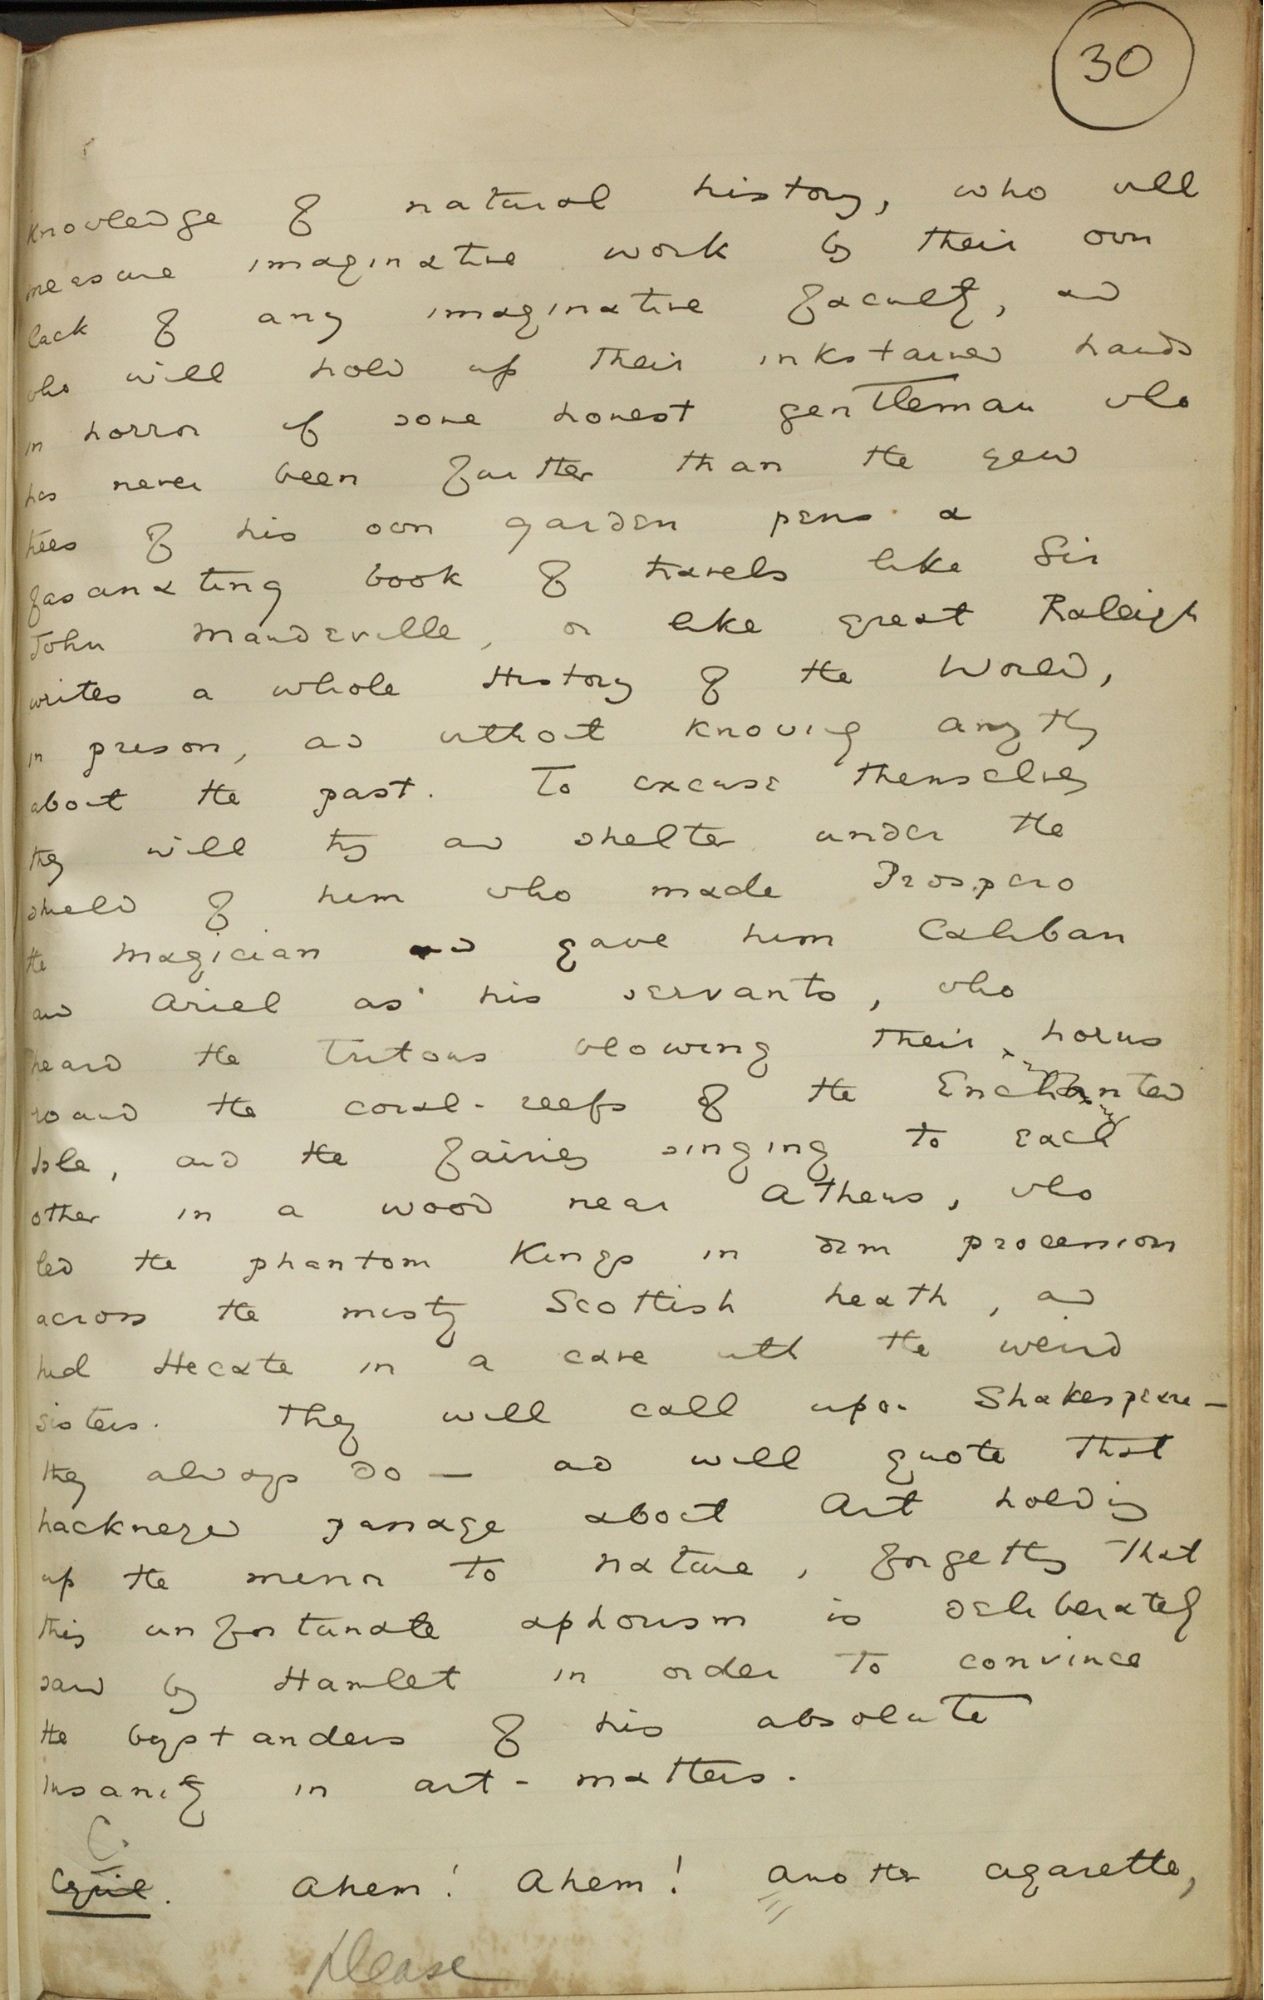 30
knowledge of natural history, who will
measure imaginative work by their own
lack of any imaginative faculty, and
who will hold up their inkstained hands
in horror if some honest gentleman who
has never been further than the yew
trees of his own garden pens a
fascinating book of travels like Sir
John Mandeville, or like great Raleigh
writes a whole History of the World,
in prison, and without knowing anything
about the past. To excuse themselves
they will try and shelter under the
shield of him who made Prospero
the magician and gave him Caliban
and Ariel as his servants, who
heard the Tritons blowing their horns
round the coral-reefs of the Enchanted
Isle, and the fairies singing to each
other in a wood near Athens, who
led the phantom Kings in dim procession
across the misty Scottish heath, and
hid Hecate in a cave with the weird
sisters. They will call upon Shakespeare —
they always do — and will quote that
hackneyed passage about Art holding
up the mirror to nature, forgetting that
this unfortunate aphorism is deliberately
said by Hamlet in order to convince
the bystanders of his absolute
insanity in art-matters.
C.
Cyril. Ahem! Ahem! Another cigarette,
please